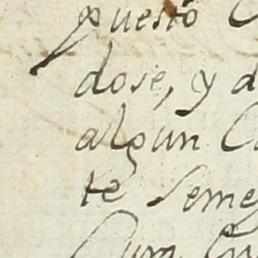 puesto
dose, y d
algun C
te Seme